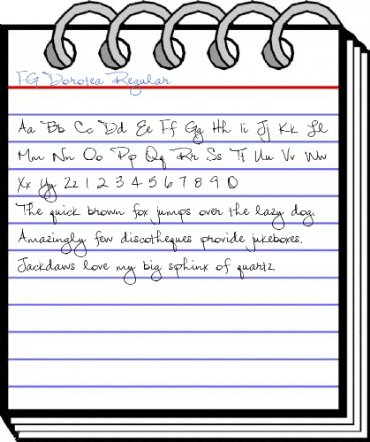 FG Dorotea Regular
Aa Bb Cc Dd Ee Ff Gg Hh Ii Jj Kk Ll
Mm Nn Oo Pp Qq Rr Ss Tt Uu Vv Ww
Xx Yy Zz 1 2 3 4 5 6 7 8 9 0
The quick brown fox jumps over the lazy dog.
Amazingly few discotheques provide jukeboxes.
Jackdaws love my big sphinx of quartz